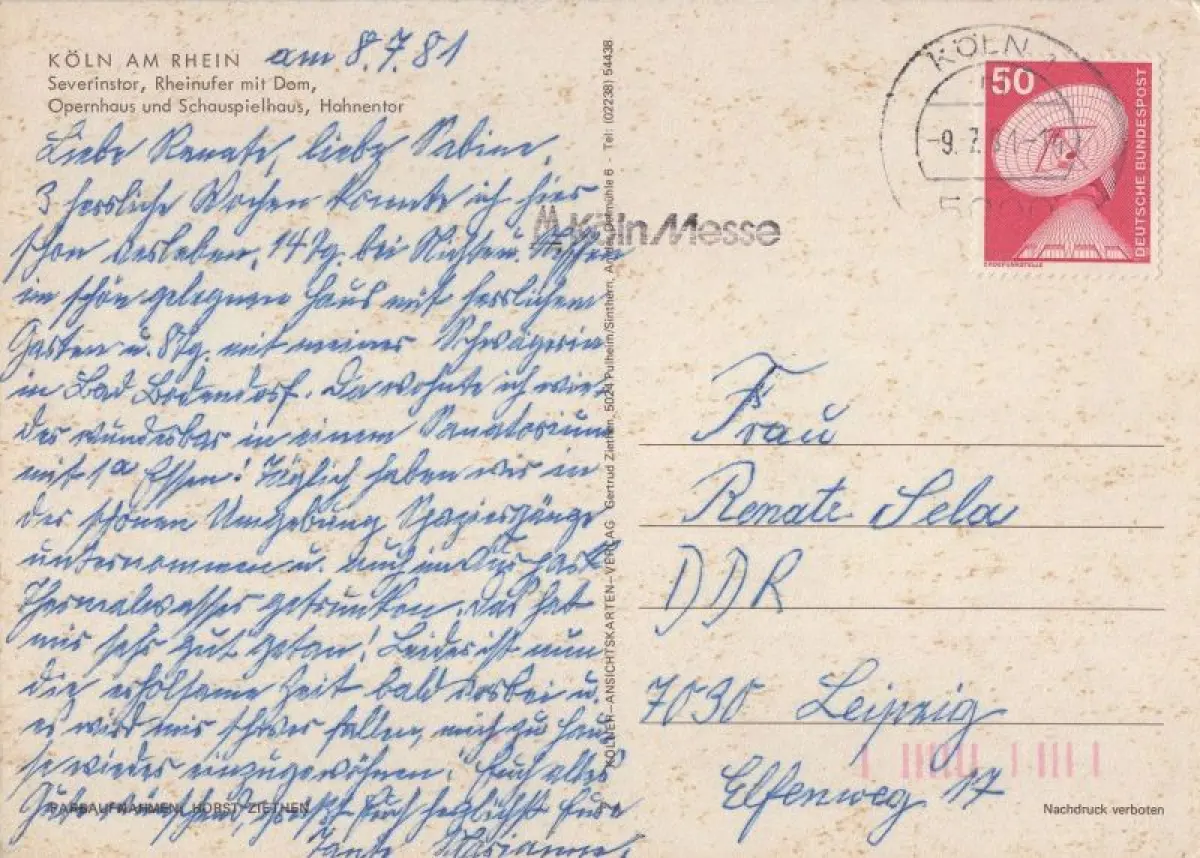 KÖLN AM RHEIN am 8.7.81
Severinstor, Rheinufer mit Dom,
Opernhaus und Schauspielhaus, Hahnentor
Liebe Renate, liebe Sabine,
3 herrliche Wochen konnte ich hier
schon verleben, 14 Tg. bei Nichte u. Neffen
im schön gelegenen Haus mit herrlichem
Garten u. 8 Tg. mit meiner Schwägerin
in Bad Bodendorf. Da wohnte ich wie-
der wunderbar in einem Sanatorium
mit 1a Essen! Täglich haben wir in
der schönen Umgebung Spaziergänge
unternommen u. auch im Kurpark
Thermalwasser getrunken. Das hat
mir sehr gut getan! Leider ist nun
die erholsame Zeit bald vorbei u.
es wird mir schwer fallen, mich zu Hau-
se wieder einzugewöhnen. Euch alles
Gute wünschend, grüßt Euch herzlichst Eure
Tante Marianne.
FARBAUFNAHMEN: HORST ZIETHEN
KÖLNER-ANSICHTSKARTEN-VERLAG Gertrud Ziethen, 5024 Pulheim/Sinthern, Tel: (02238) 54438
KÖLN
-9.7.81-
KölnMesse
50
DEUTSCHE BUNDESPOST
ERDEFUNKSTELLE
Frau
Renate Sela
DDR
7030 Leipzig
Elfenweg 17
Nachdruck verboten